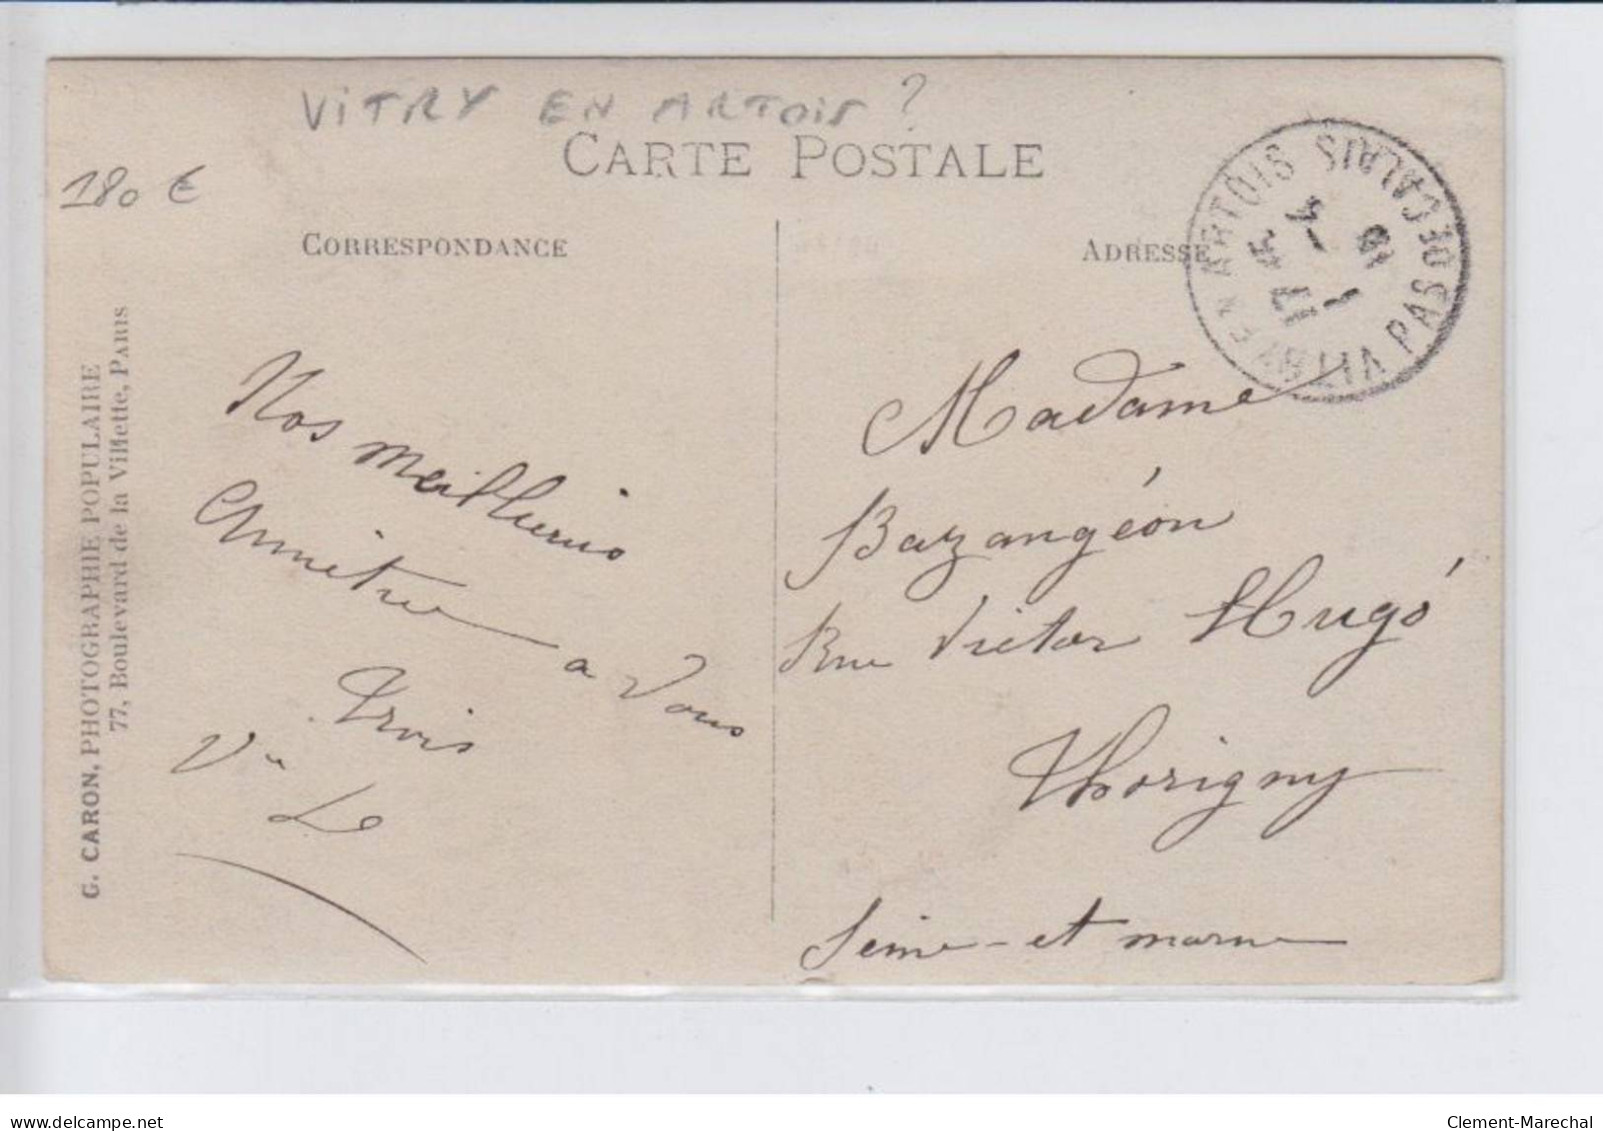 VITRY EN ARTOIS ?
180 €
CARTE POSTALE
CORRESPONDANCE
ADRESSE
VITRY EN ARTOIS PAS DE CALAIS
17 45
4 - 1
G. CARON, PHOTOGRAPHIE POPULAIRE
77, Boulevard de la Villette, PARIS
Nos meilleurs
Amitie
a Vous
trois
Madame
Bazangéon
Rue Victor Hugó
Thorigny
Seine-et marne
Clement-Marechal